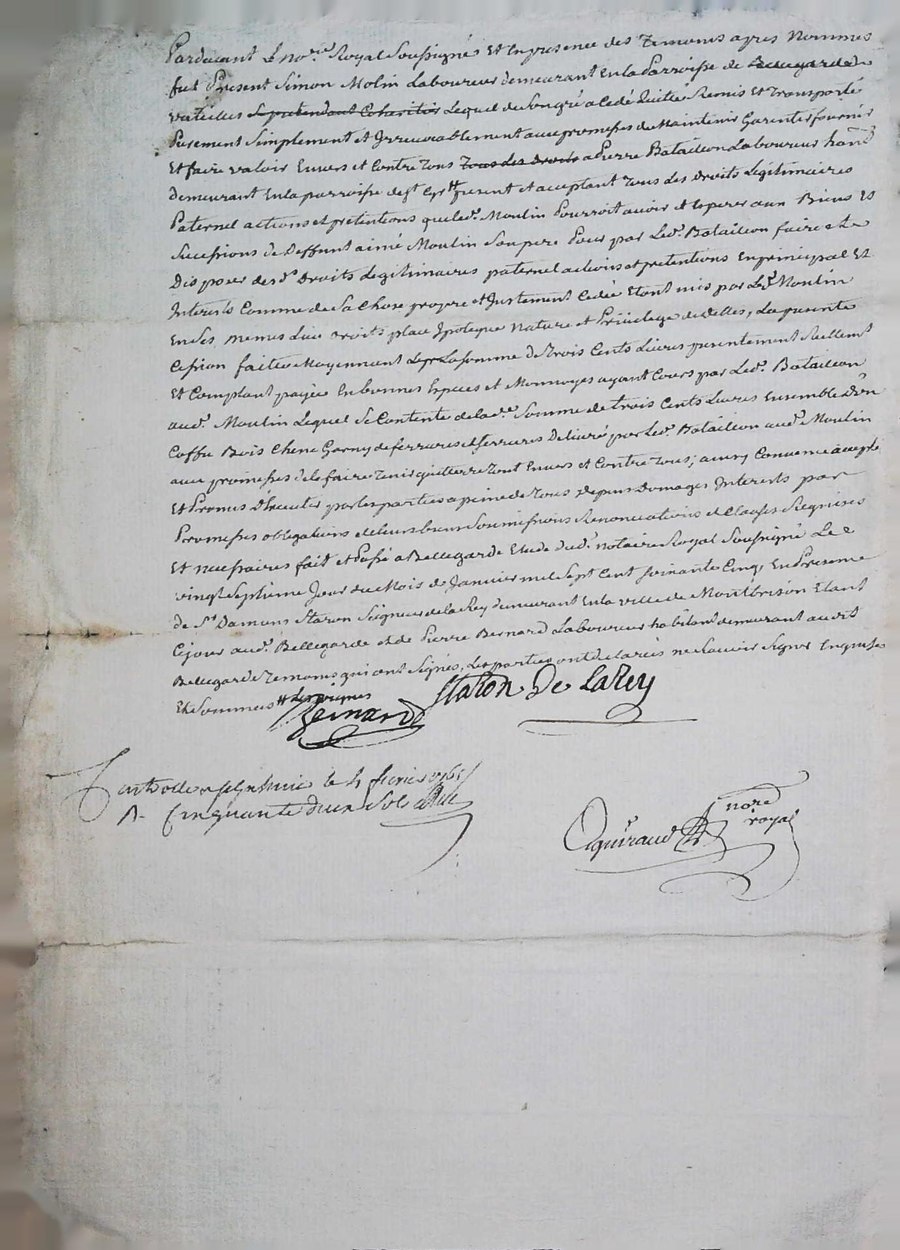 Pardevant Le no.re Royal Soussigné Et En presence des Temoins apres Nommes
fut Present Simon Molin Laboureur demeurant En la Parroisse de Bellegarde
Lequel de Son gré a Cedé Quitté Remis Et Transporté
Purement Simplement et Irrevocablement avec promesses de Maintenir Garentir fournir
Et faire valoir Envers et Contre Tous Tous des droits a Pierre Batailion Laboureur
demeurant En la parroisse de St Cyr present et aceptant Tous des Droits Legitimaires
Paternel actions et pretentions que led. Moulin Pourroit avoir et Esperer aux Biens Et
Successions de Deffunt aimé Moulin Son pere Pour par Led. Batailion faire et
Disposer desd. Droits Legitimaires paternel actions et pretentions En principal Et
Interets Comme de Sa Chose propre et Justement Cedée Etant mis par Led. Moulin
En Ses memes Lieu droits place Ipoteque Nature et Privilege d'icelles, La presente
Cession faitte Moyennant La Somme de Trois Cents Livres presentement Reellem.t
Et Comptant payée En bonnes Especes et Monnoyes ayant Cours par Led. Batailion
aud. Moulin Lequel Se Contente de lad. Somme de trois Cents Livres Ensemble D'un
Coffre Bois Chene Garny de ferrures et Serrures Delivré par Led. Batailion aud. Moulin
avec promesses de le faire Tenir quitte Envers et Contre Tous; ainsy Convenu accepté
Et Promis D'Executer par les parties a peine de Tous Depens Domages Interests par
Promesses obligations de leurs biens Soumissions Renonciations et Clauses Requises
Et necessaires fait et Passé a Bellegarde Etude dud. notaire Royal Soussigné Le
vingt Septieme Jour du Mois de Janvier mil Sept Cent Soixante Cinq En Presence
de Sr Damons Staron Seigneur de la Rey demeurant En la ville de Montbrison Etant
Cejour aud. Bellegarde et de Pierre Bernard Laboureur habitant demeurant audit
Bellegarde Temoins qui ont Signés, Les parties ont declarées ne Scavoir Signer Enquises
Et Sommées
Bernard Staron De LaRey
le 4 fevrier 1765
R. Cinquante d'un Sol
nore
royal